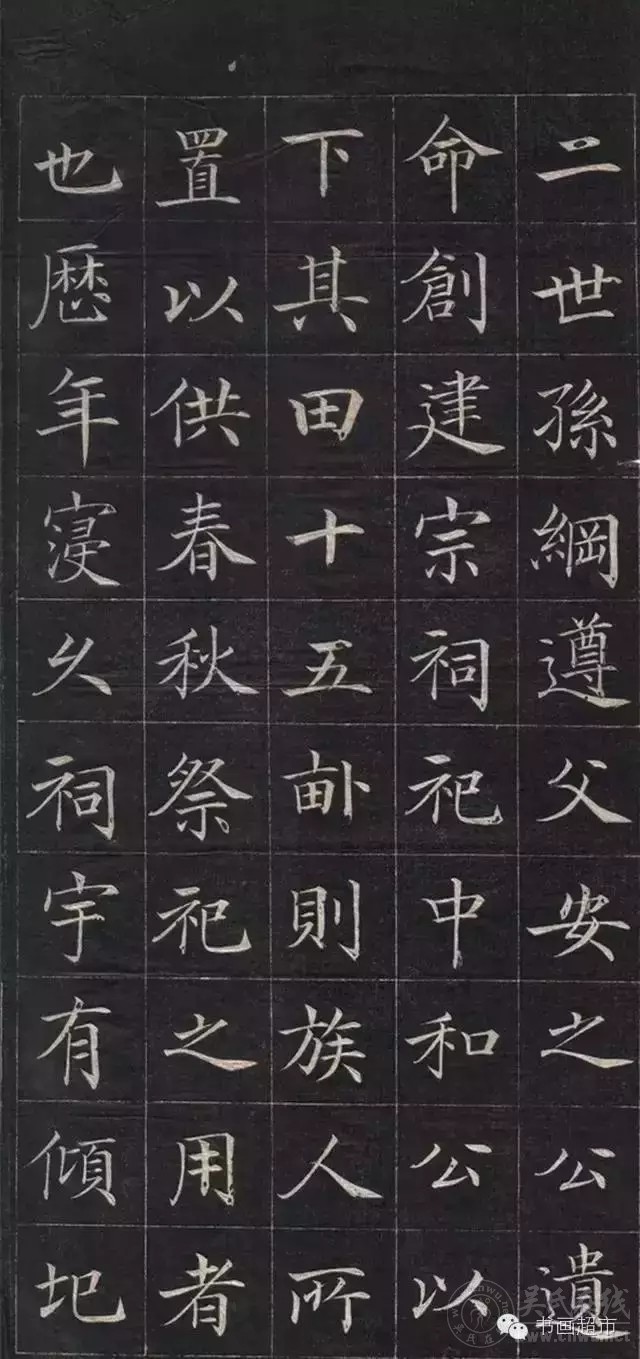 二世孫綱遵父安之公遺
命創建宗祠祀中和公以
下其田十五畝則族人所
置以供春秋祭祀之用者
也歴年寖久祠宇有傾圮
书画超市